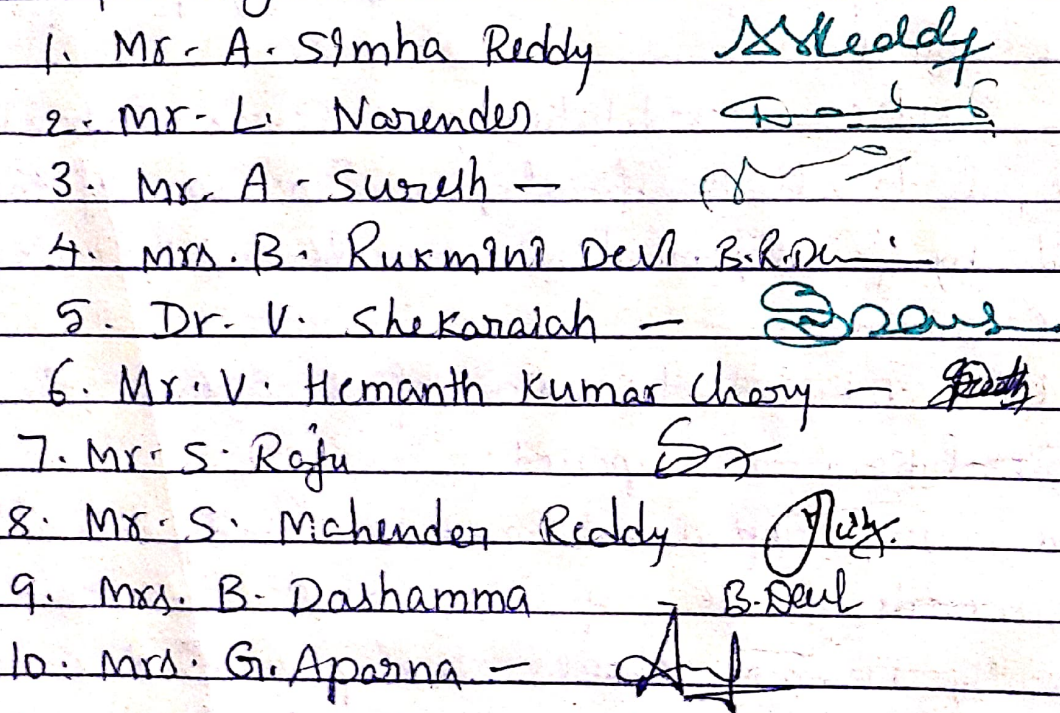 1. Mr. A. Simha Reddy
2. Mr. L. Narender
3. Mr. A. Suresh -
4. Mrs. B. Rukmini Devi B.R.De
5. Dr. V. Shekaraiah -
6. Mr. V. Hemanth Kumar Chary -
7. Mr. S. Raju
8. Mr. S. Mahender Reddy
9. Mrs. B. Dashamma
10. Mrs. G. Aparna -